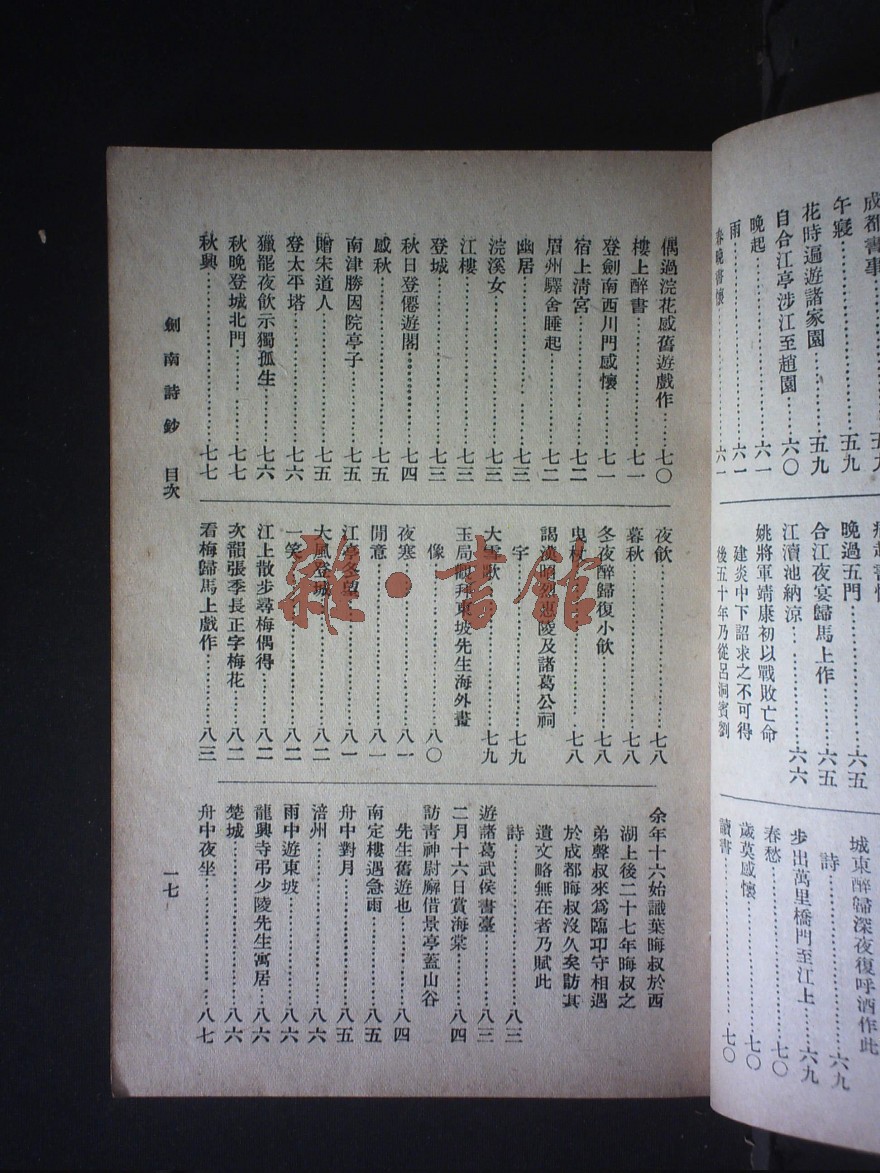 成都書事……五九
午寢……五九
花時遍遊諸家園……五九
自合江亭涉江至趙園……六〇
晚起……六一
雨……六一
春晚書懷……六一
晚過五門……六五
合江夜宴歸馬上作……六五
江瀆池納涼……六六
姚將軍靖康初以戰敗亡命
建炎中下詔求之不可得
後五十年乃從呂洞賓劉
城東醉歸深夜復呼酒作此
詩……六九
步出萬里橋門至江上……六九
春愁……七〇
歲莫感懷……七〇
讀書……七〇
偶過浣花感舊遊戲作……七〇
樓上醉書……七一
登劍南西川門感懷……七一
宿上清宮……七二
眉州驛舍睡起……七二
幽居……七三
浣溪女……七三
江樓……七三
登城……七三
秋日登僊遊閣……七四
感秋……七五
南津勝因院亭子……七五
贈宋道人……七五
登太平塔……七六
獵罷夜飲示獨孤生……七六
秋晚登城北門……七七
秋興……七七
夜飲……七八
暮秋……七八
冬夜醉歸復小飲……七八
曳杖……七八
謁漢昭烈惠陵及諸葛公祠
宇……七九
大雪歌……七九
玉局觀拜東坡先生海外畫
像……八〇
夜寒……八一
閒意……八一
江亭冬望……八一
大風登城……八二
一笑……八二
江上散步尋梅偶得……八二
次韻張季長正字梅花……八二
看梅歸馬上戲作……八三
余年十六始識葉晦叔於西
湖上後二十七年晦叔之
弟聲叔來爲臨邛守相遇
於成都晦叔沒久矣訪其
遺文略無在者乃賦此
詩……八三
遊諸葛武侯書臺……八三
二月十六日賞海棠……八四
訪青神尉廨借景亭蓋山谷
先生舊遊也……八四
南定樓遇急雨……八五
舟中對月……八五
涪州……八六
雨中遊東坡……八六
龍興寺弔少陵先生寓居……八六
楚城……八六
舟中夜坐……八七
劍南詩鈔 目次
一七
雜·書館